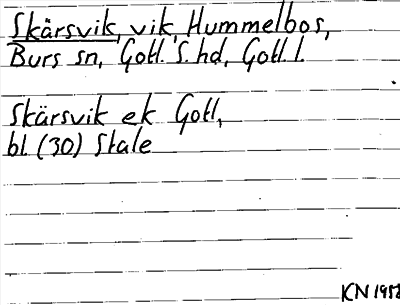 Skärsvik, vik, Hummelbos,
Burs sn, Gotl. S. hd, Gotl. l.
Skärsvik ek Gotl,
bl. (30) Stale
KN 1958